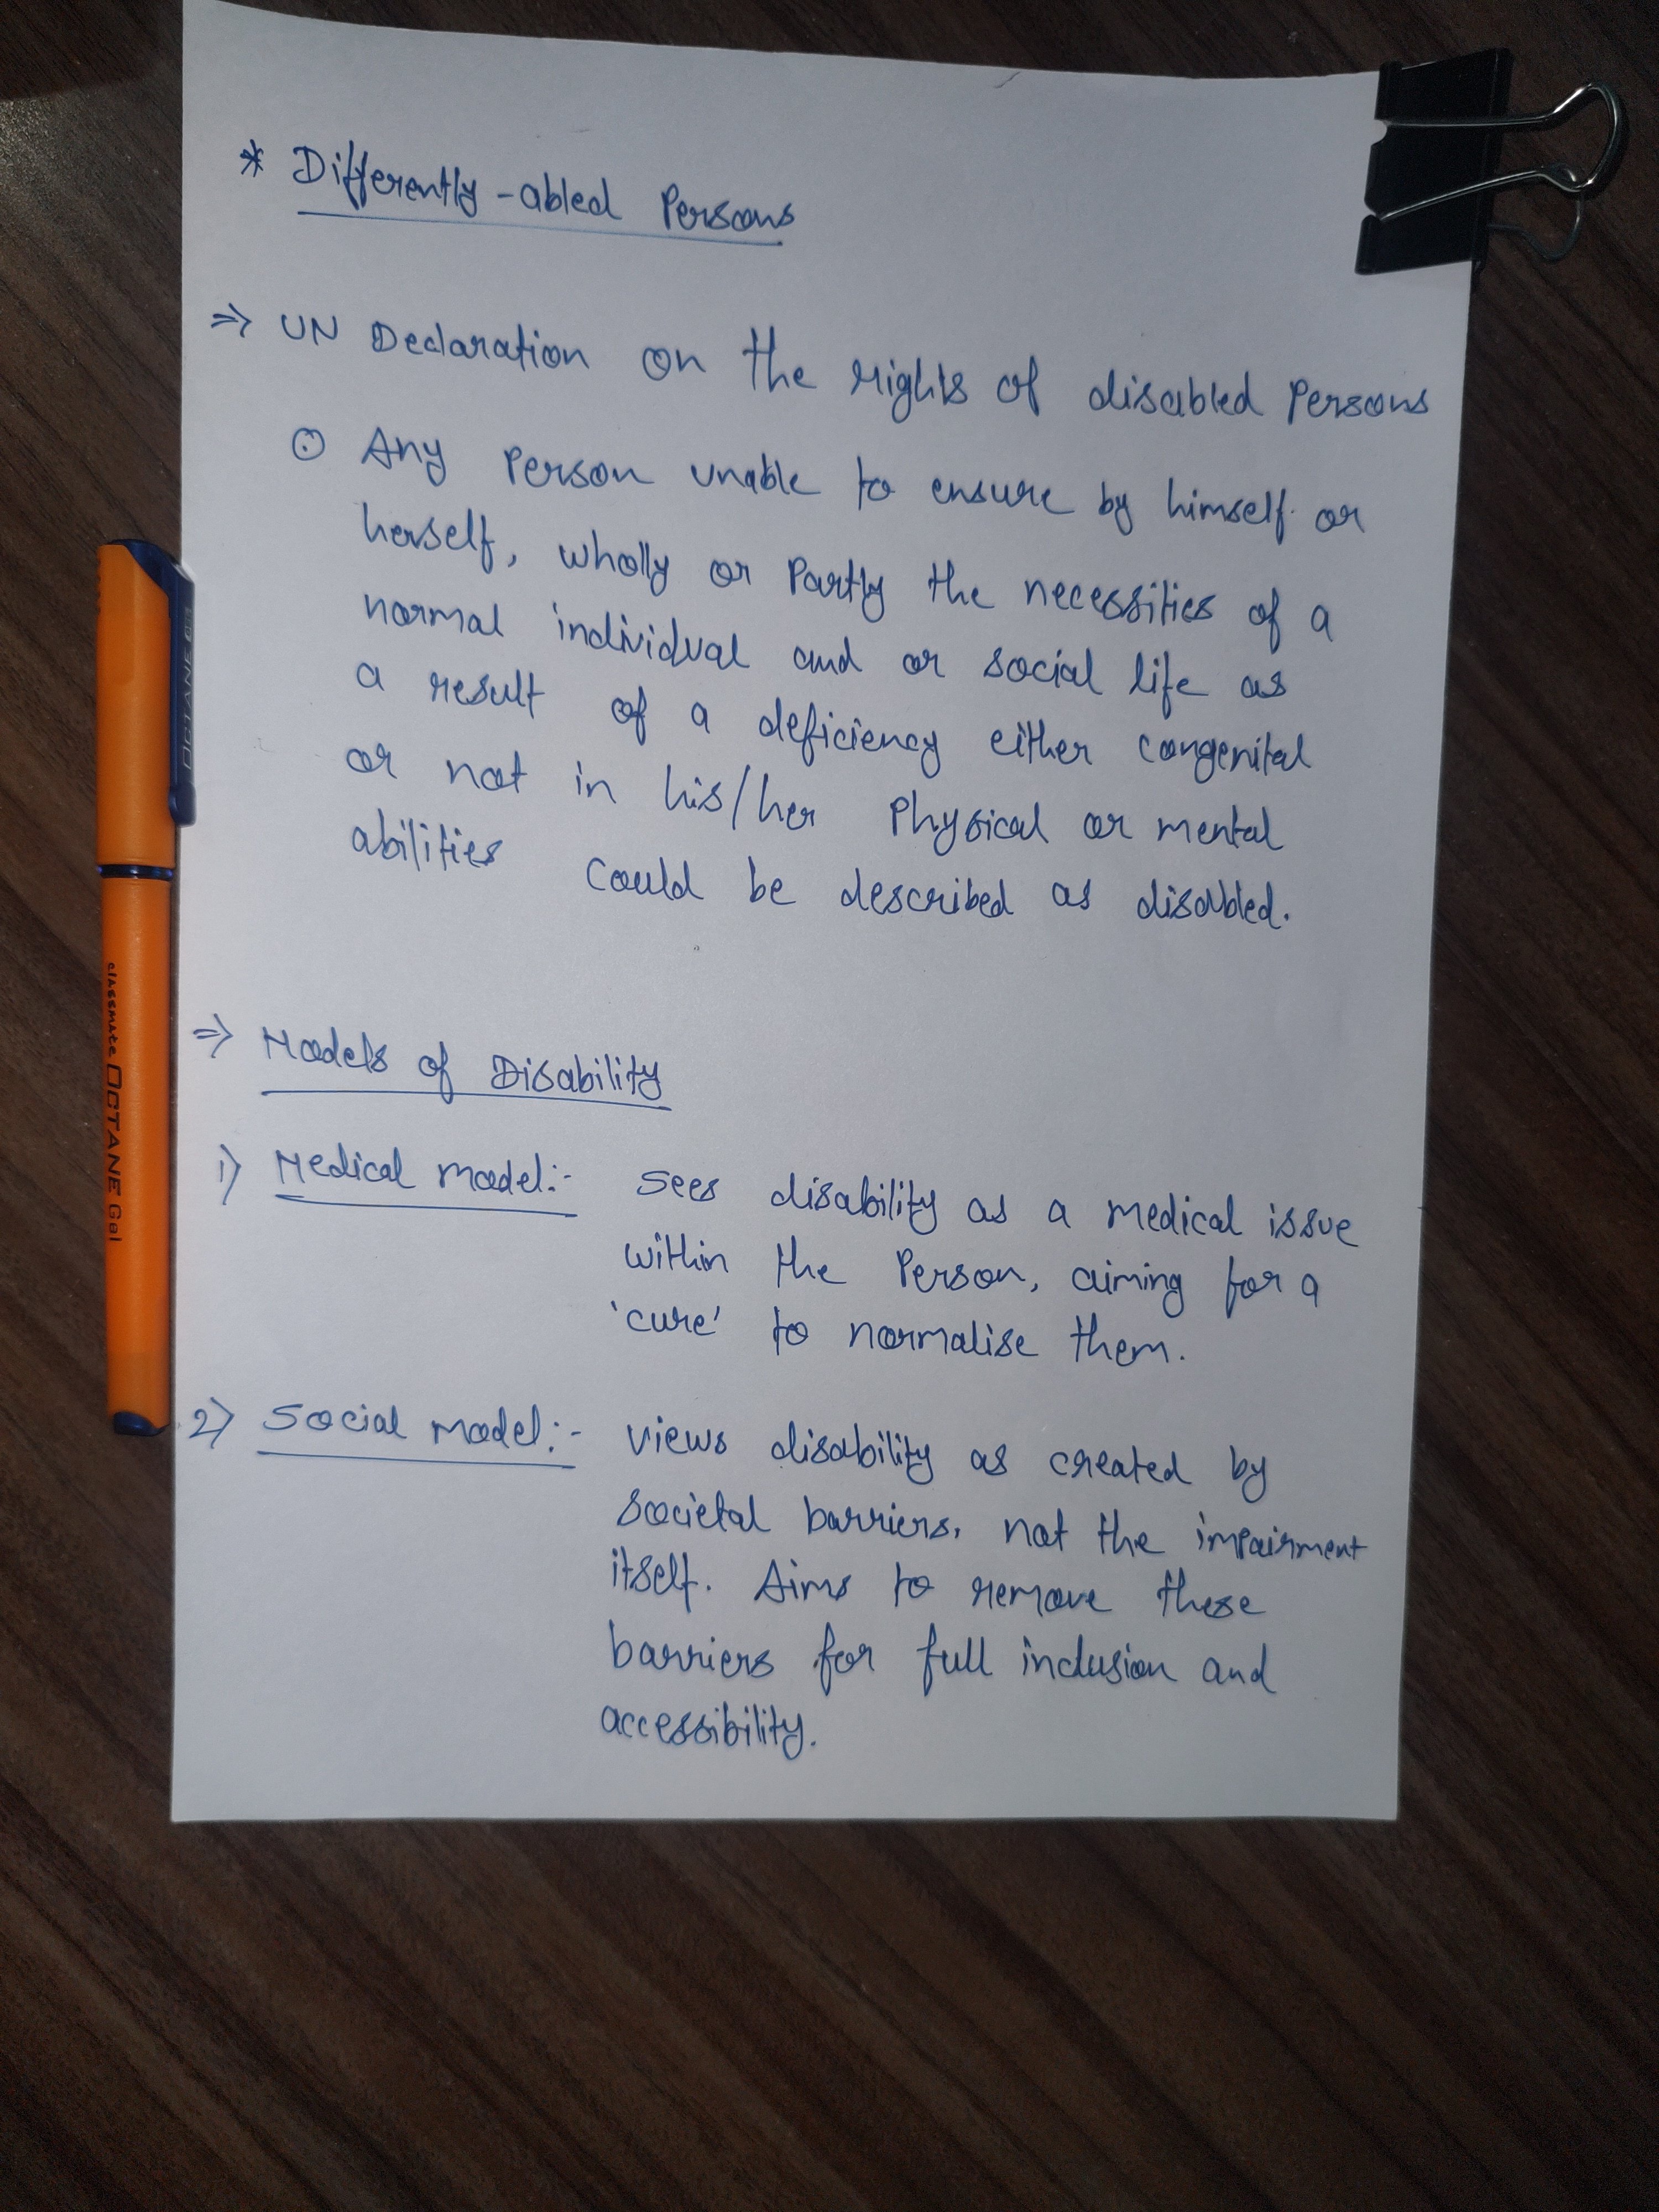 * Differently-abled Persons
⇒ UN Declaration on the rights of disabled Persons
⊙ Any Person unable to ensure by himself or
herself, wholly or Partly the necessities of a
normal individual and or social life as
a result of a deficiency either congenital
or not in his/her Physical or mental
abilities could be described as disabled.
⇒ Models of Disability
1) Medical model:- sees disability as a medical issue
within the Person, aiming for a
'cure' to normalise them.
2) Social model:- views disability as created by
societal barriers, not the impairment
itself. Aims to remove these
barriers for full inclusion and
accessibility.
OCTANE Gel
classmate OCTANE Gel